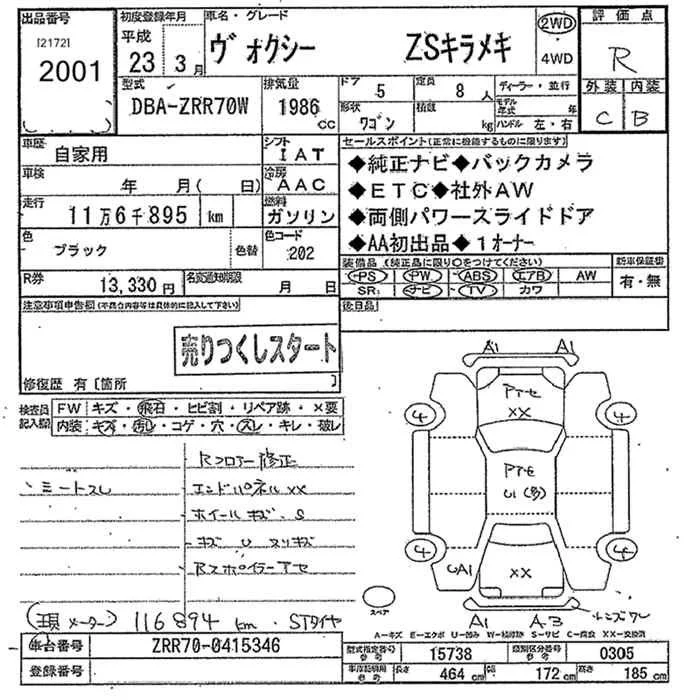 出品番号
[21721]
2001
初度登録年月
平成
23年 3月
車名・グレード
ヴォクシー ZSキラメキ
2WD
4WD
評価点
R
外装 内装
C B
型式
DBA-ZRR70W
排気量
1986 cc
ドア 5
定員 8 人
形状 ワゴン
積載 kg
ディーラー・並行
モデル年式 年
ハンドル 左・右
車歴
自家用
シフト
IAT
車検
年 月( 日)
冷房
AAC
走行
11万6千895 km
燃料
ガソリン
色
ブラック
色替
色コード
202
R券
13,330円
名変通知期限
月 日
セールスポイント(正常に機能するものに限ります)
◆純正ナビ◆バックカメラ
◆ETC◆社外AW
◆両側パワースライドドア
◆AA初出品◆1オーナー
装備品(純正品に限り○をつけてください)
新車保証書
PS PW ABS エアB AW
SR ナビ TV カワ
有・無
後日品
注意事項申告欄(不具合内容等は具体的に記入して下さい)
売りつくしスタート
修復歴 有〔箇所 〕
検査員記入欄
FW キズ・飛石・ヒビ割・リペア跡・×要
内装 キズ・汚レ・コゲ・穴・スレ・キレ・破レ
Rフロアー修正
シートスレ
エンドパネルXX
ホイールキズ、S
キズ U スリキズ
Rスポイラーアセ
(現メーター) 116894 km、STタイヤ
A1 A1
PTセ
XX
4 4
PTセ
U1(多)
4 4
UA1
XX
スペア
A1 A3 レンズワレ
A-キズ E-エクボ U-凹み W-補修跡 S-サビ C-腐食 XX-交換済
車台番号
ZRR70-0415346
登録番号
型式指定番号 参考
15738
類別区分番号 参考
0305
車庫証明用 参考
長さ 464 cm
幅 172 cm
高さ 185 cm